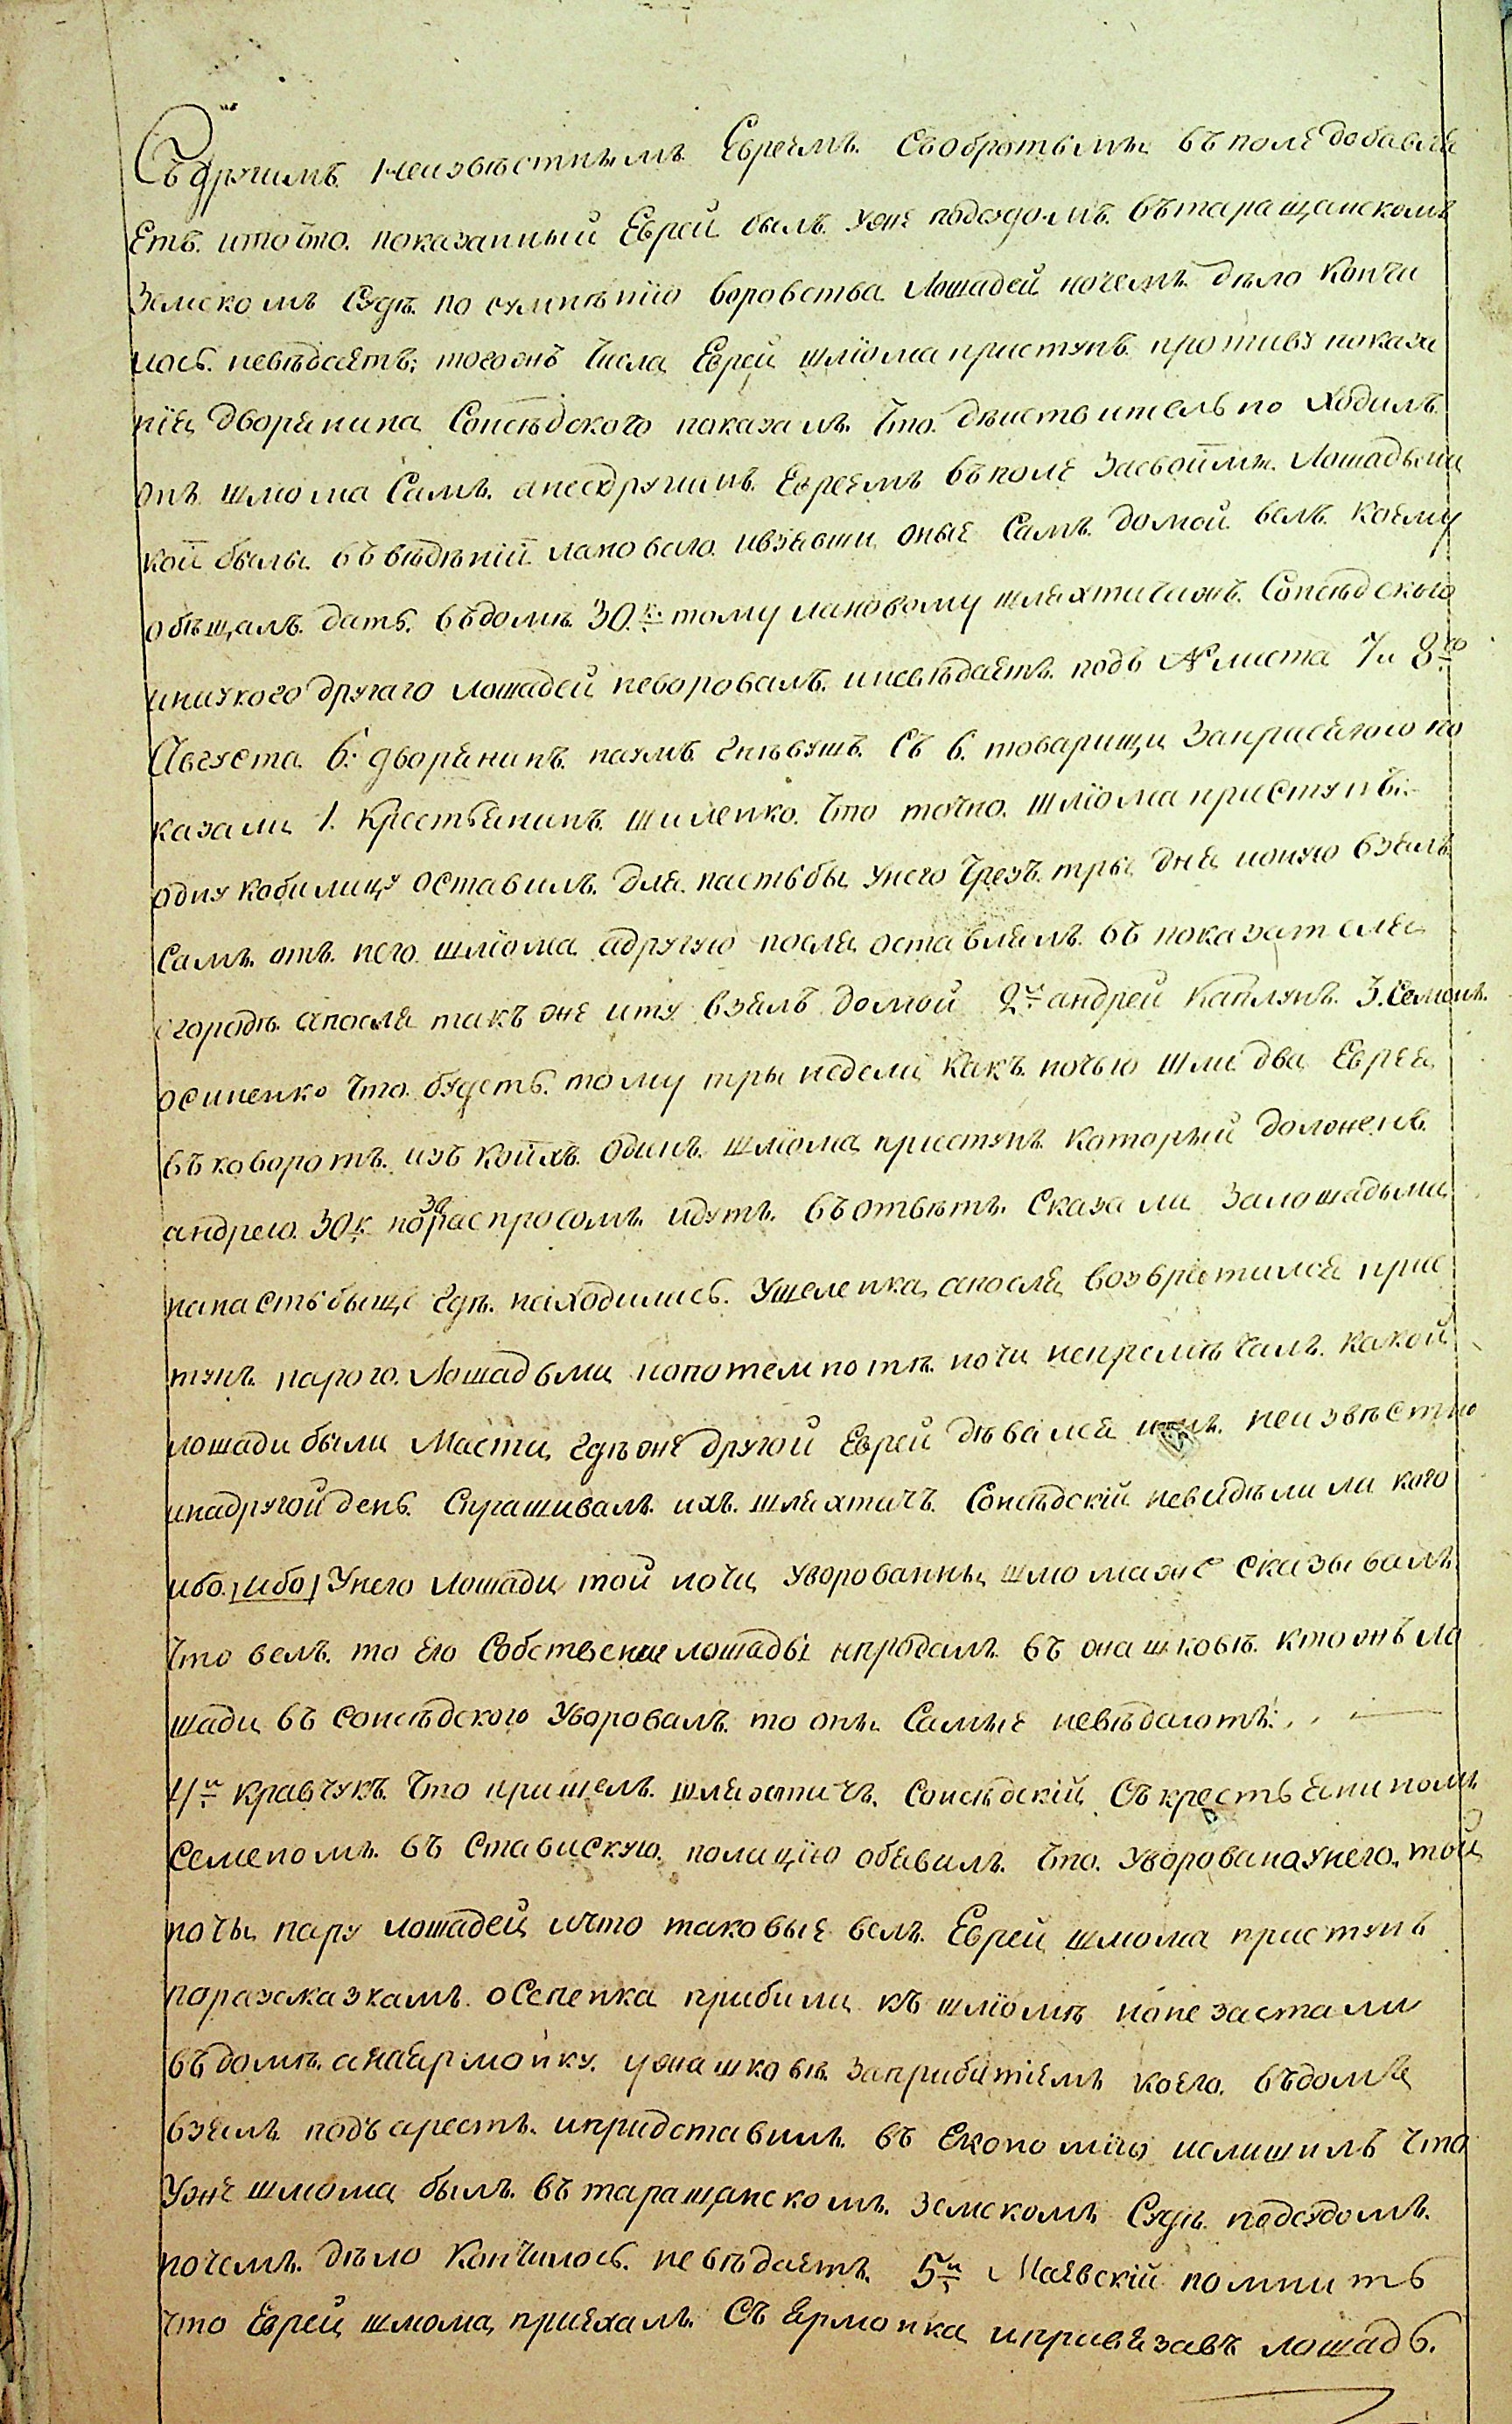 Съ другимъ неизвѣстнымъ Евреемъ. Съобратьмы въ поле добавля
Етъ. итобто. показанный Еврей былъ уже подсудомъ. вътаращанскомъ
Земскомъ Судѣ. по сумнѣнію воровства Лошадей почемъ. дѣло Кончи
лось. невѣдаетъ; тогожъ Числа Еврей шліома приступъ. противу показа
нія дворянина Сонсѣдского показалъ. Что. дѣиствително Ходилъ
онъ шлома Самъ. анесдругимъ. Евреемъ въполе Засвоймы. Лошадьми
кой былы. въвѣдѣній лановаго ивзявши оные Самъ домой. велъ. коему
объщалъ. дать. въдомѣ. 30.к: тому лановому шляхтичажъ. Сонсѣдского
иниукого другаго лошадей неворовалъ. иневѣдаетъ. подъ № листа 7 и 8го
Августа 6: дворянинъ. наумъ Гнѣвушъ. съ 6. товарищи Заприсягою по
казали 1. Крестьянинъ. шиленко. Что точно. шліома приступъ:
одну кобилицу оставилъ. для. пастьбы унего Чрезъ. тры дня ионую взялъ
Самъ. отъ. него. шліома адругую после оставлялъ. въ показателя
огородѣ. апосля такъ же иту взялъ домой 2й андрей Каплунъ. 3. Семенъ.
осипенко Что. будеть. тому тры недели Какъ ночью шли два Еврея
въковоротъ. изъ койхъ. Одинъ. шліома приступъ. который долженъ
андрею. 30к позараспросомъ. идутъ. въответъ. Сказали Залошадьми
напастьбыще гдѣ. находились. Ушеленка, апосля возвратился прис
тупъ. парого. Лошадьми нопотемноти. ночи непремѣчалъ. какой
лошади были Масти, гдѣже другой Еврей дѣвался имъ. неизвѣстно
инадругой день. Спрашивалъ. ихъ. шляхтичъ. Сонсѣдскій невидѣли ли кого
ибо, |ибо| Унего лошади той ночи уворованны, шлиомаже сказывалъ.
Что велъ. то его Собственые лошады ипродалъ въ жашковѣ. ктожъ ло
шади въ сонсѣдского Уворовалъ. то онъ. Самые невѣдаютъ:. . . —
4й Кравчукъ. Что пришелъ. шляхтичъ. Сонсѣдскій Съкрестьяниномъ
Семеномъ. въ Ставискую. полицію обявилъ. Что. уворованаунего. той
ночы пару лошадей ичто таковые велъ. Еврей шлома приступъ
поразсказкамъ осепенка прибили къ шліомѣ ноне застали
въдомѣ. анаярмонку. ужашковѣ. Заприбитіемъ коего. въдомѣ
взялъ подъ арестъ. ипридставилъ въ Екопомію ислишилъ что
Уже шлиома былъ. вътаращанскомъ. земскомъ Судѣ. подсудомъ.
почемъ. дѣло Кончилось. невѣдаетъ. 5й Маевскій помнить
что Еврей шлиома, приехалъ. Съ Ярмонка ипривязавъ лошадь.